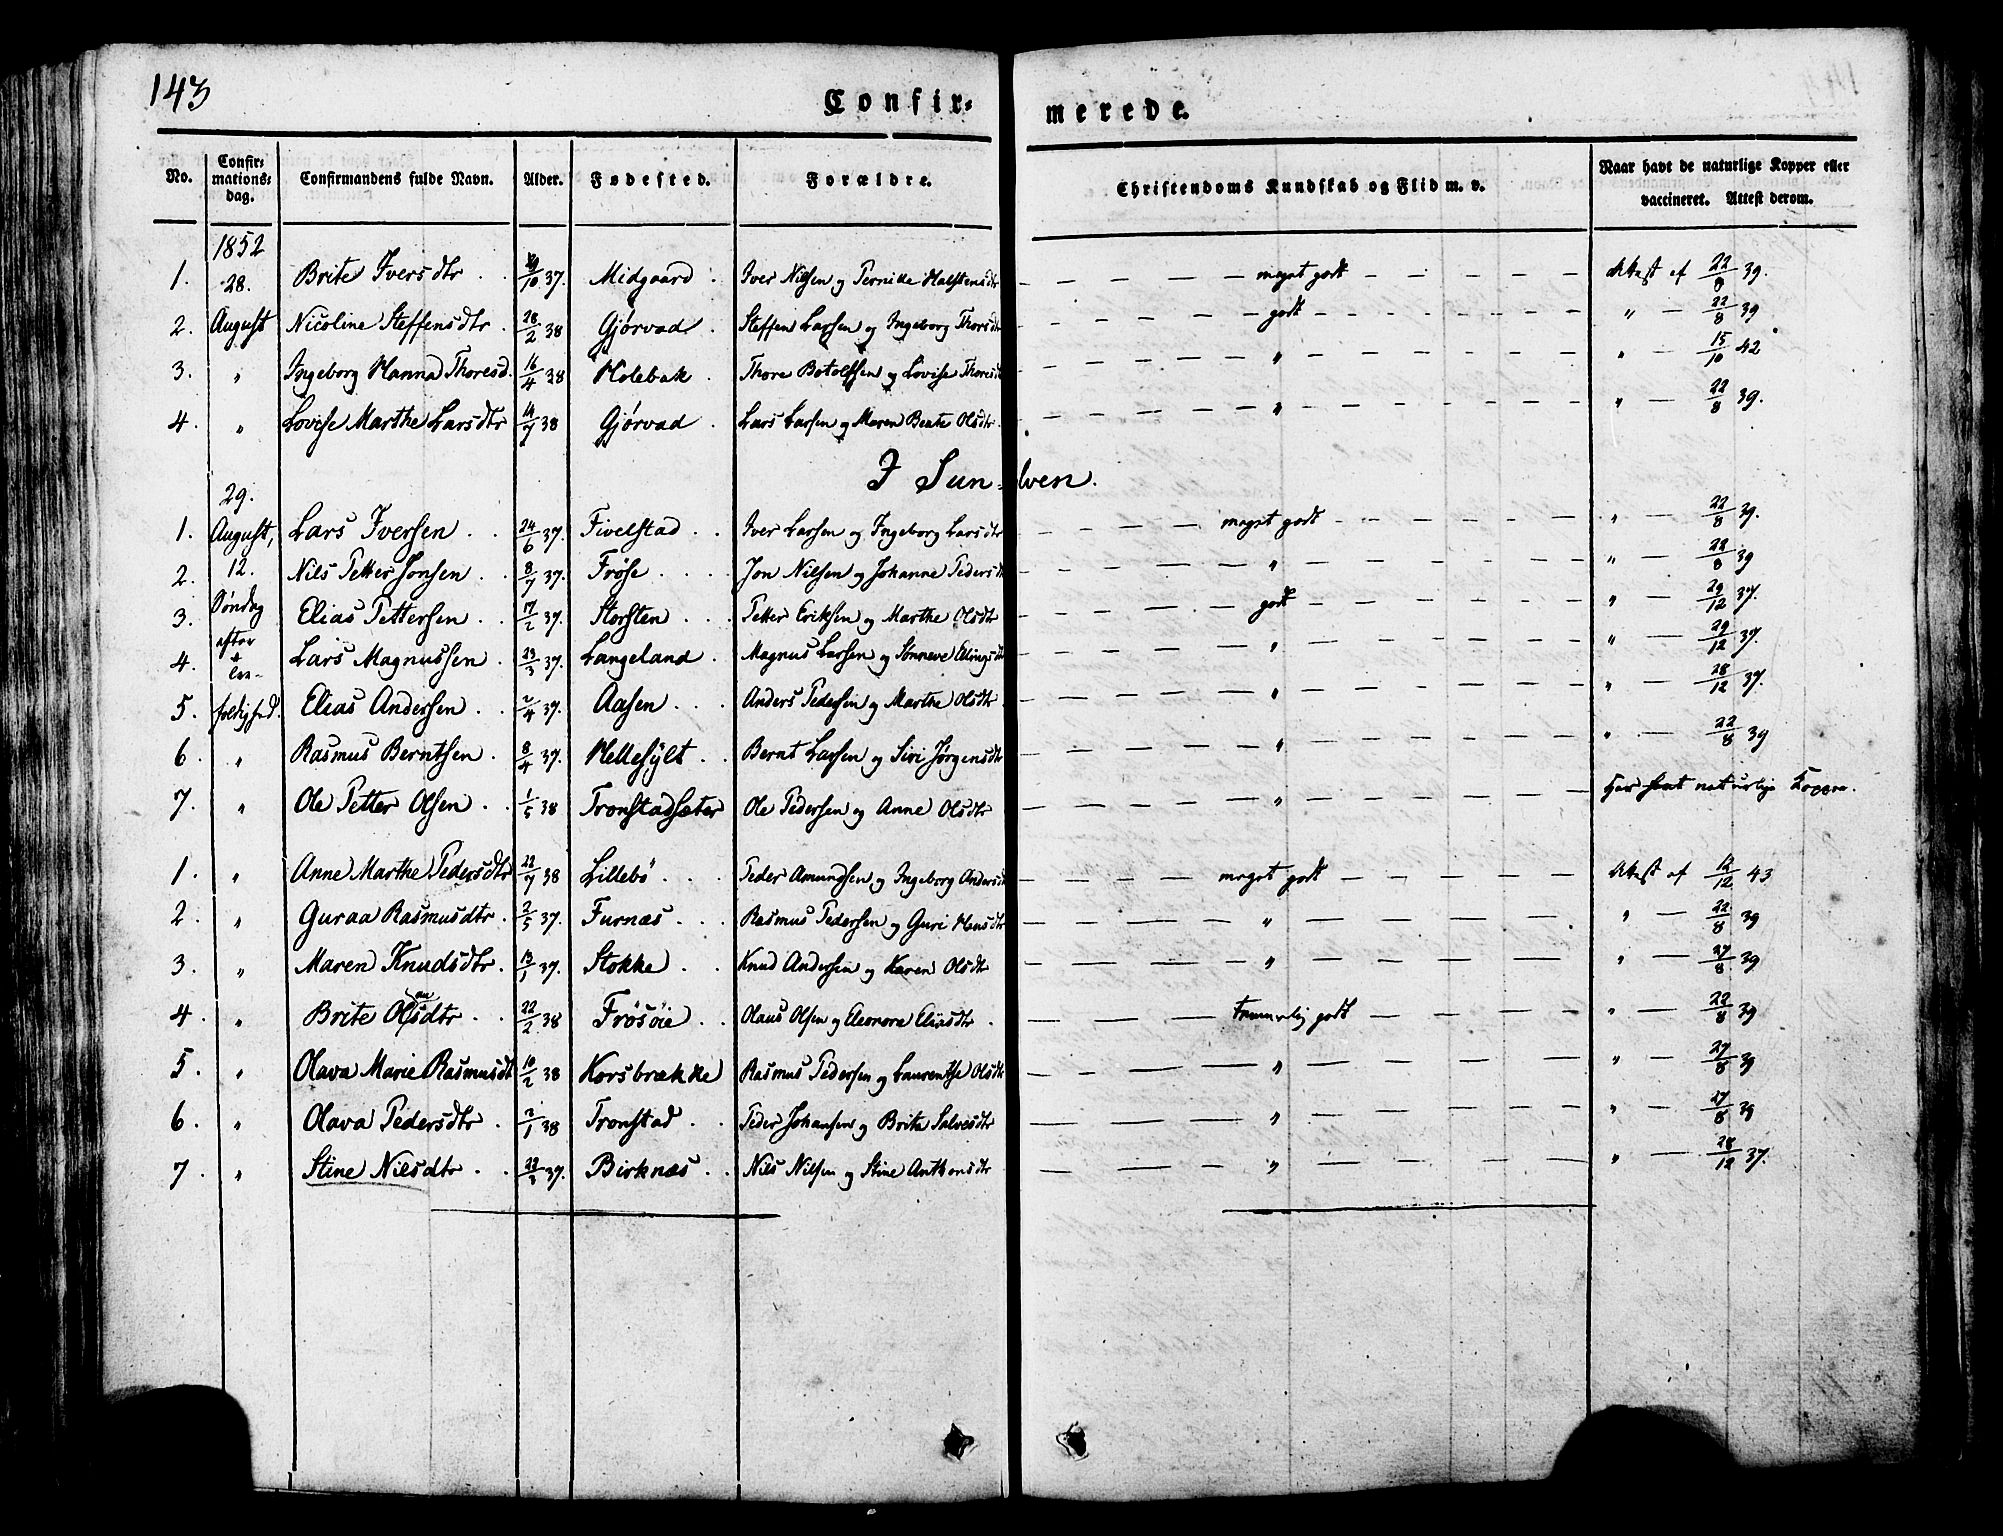 143
Confir= merede.
No. Confir= mations= dag. Confirmandens fulde Navn. Alder. Fødested. Forældre. Christendoms Kundskab og Flid m. v. Naar havt de naturlige Kopper eller vaccineret. Attest derom.
1852
1. 28. Brite Iversdtr /10 37. Midgaard Iver Nilsen og Pernille Halstensdtr meget godt Attest af 22/8 39.
2. August Nicoline Steffensdtr 28/2 38 Gjørvad Steffen Larsen og Ingeborg Thorsdtr godt " 22/8 39
3. " Ingeborg Hanna Thoresd. 16/4 38 Holebak Thore Botolfsen og Lovise Thoresdt " " 15/10 42
4. " Lovise Marthe Larsdtr 14/7 38 Gjørvad Lars Larsen og Maren Beate Olsdtr " " 22/8 39.
I Sun=lven.
29.
1. August, Lars Iversen 24/6 37. Fivelstad Iver Larsen og Ingeborg Larsdtr meget godt " 22/8 39.
2. 12. Nils Petter Jonsen 8/7 37. Frøse Jon Nilsen og Johanne Pedersdt " " 22/8 39
3. Søndag Elias Pettersen 17/2 37. Storsten Petter Eriksen og Marthe Olsdtr godt " 29/12 37.
4. efter Lars Magnussen 23/3 37. Langeland Magnus Larsen og Sønneve Ellingsdt " " 29/12 37.
5. foldighed. Elias Andersen 2/4 37. Aasen Anders Pedersen og Marthe Olsdtr " " 28/12 37.
6. " Rasmus Berntsen 8/4 37. Hellesylt Bernt Larsen og Siri Jørgensdtr " " 22/8 39
7. " Ole Petter Olsen 1/5 38 Tronstadsæter Ole Pedersen og Anne Olsdtr " Har havt naturlige Kopper.
1. " Anne Marthe Pedersdtr 22/7 38 Lillebö Peder Amundsen og Ingeborg Andersd meget godt Attest af /12 43
2. " Guraa Rasmusdtr 2/5 37. Furnæs Rasmus Pedersen og Guri Hansdtr " " 22/8 39
3. " Maren Knudsdtr 13/1 37. Stokke Knud Andersen og Karen Olsdtr " " 27/8 39
4. " Brite Olausdtr 22/2 38 Frøsøie Olaus Olsen og Eleonora Eliasdtr temmelig godt " 22/8 39
5. " Olava Marie Rasmusdt 10/2 38 Korsbrække Rasmus Pedersen og Laurentse Olsdtr " " 27/8 39
6. " Olava Pedersdtr /1 38 Tronstad Peder Johansen og Brite Salvesdtr " " 27/8 39
7. " Stine Nilsdtr 37. Birknæs Nils Nilsen og Stine Anthonsdtr " " 28/12 37.